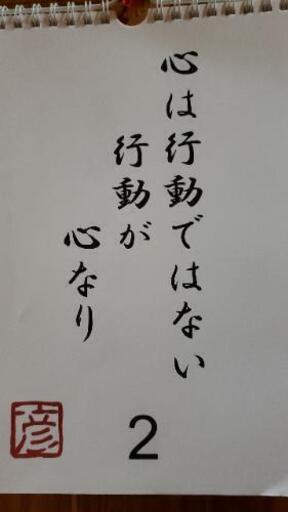 心は行動ではない
行動が
心なり
彦
2